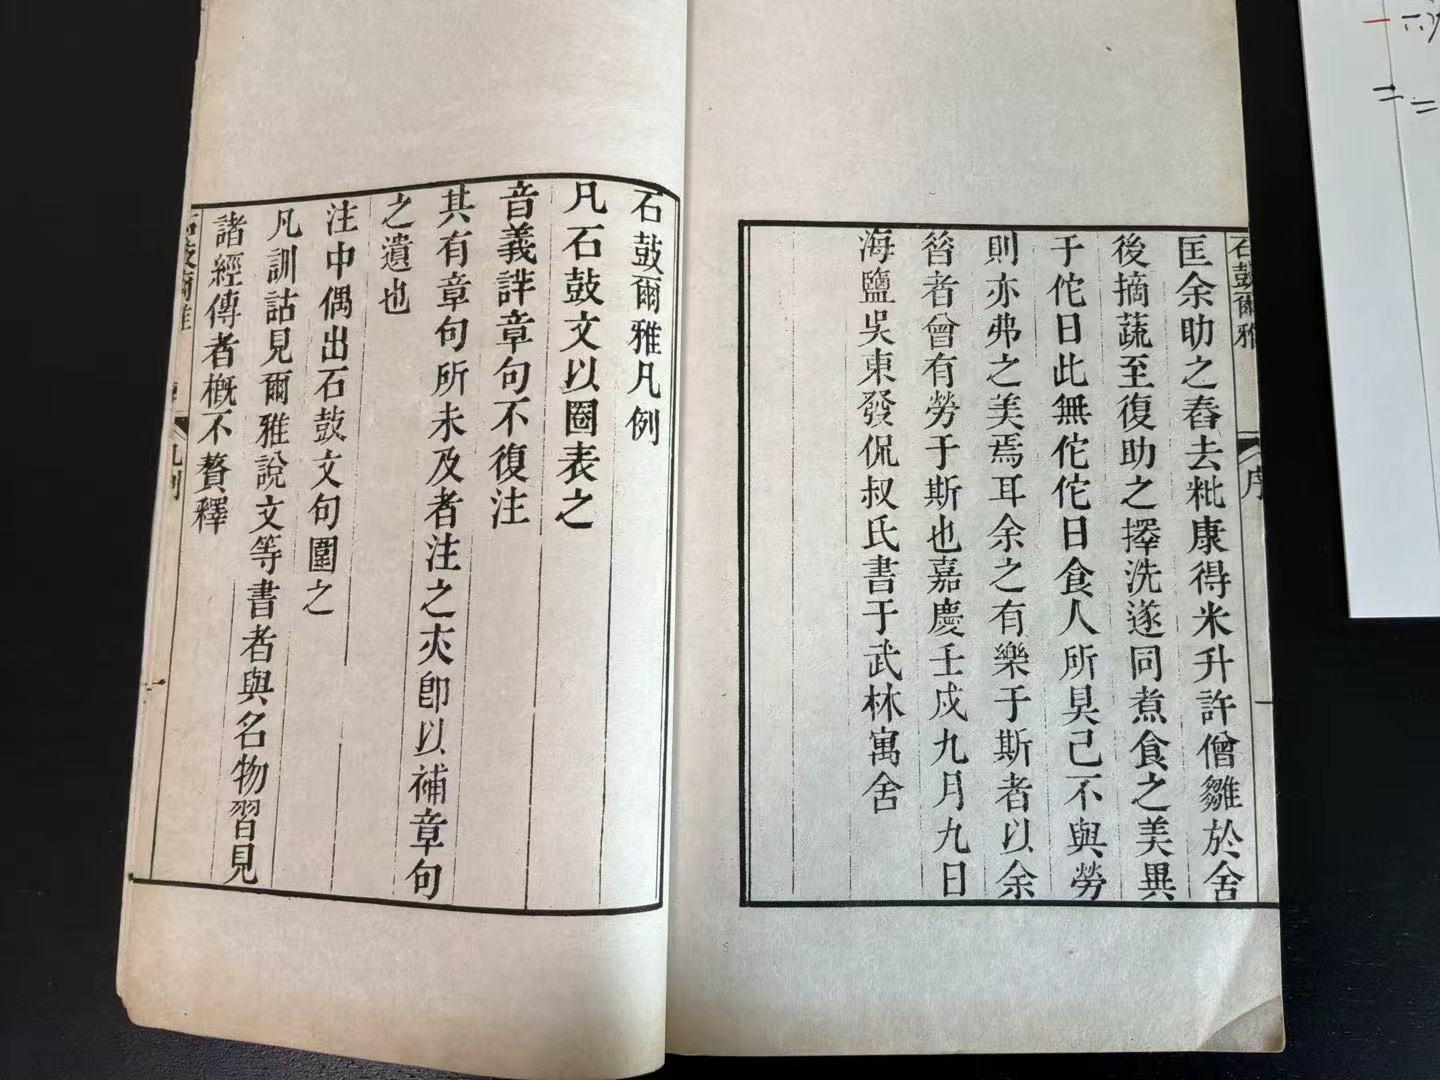 石鼓爾雅
序
一
匡余助之舂去粃康得米升許僧雛於舍
後摘蔬至復助之擇洗遂同煮食之美異
于佗日此無佗佗日食人所具己不與勞
則亦弗之美焉耳余之有樂于斯者以余
曾者曾有勞于斯也嘉慶壬戌九月九日
海鹽吳東發侃叔氏書于武林寓舍
石鼓爾雅凡例
凡石鼓文以圈表之
音義詳章句不復注
其有章句所未及者注之夾卽以補章句
之遺也
注中偶出石鼓文句圍之
凡訓詁見爾雅說文等書者與名物習見
諸經傳者槪不贅釋
石鼓爾雅
凡例
一